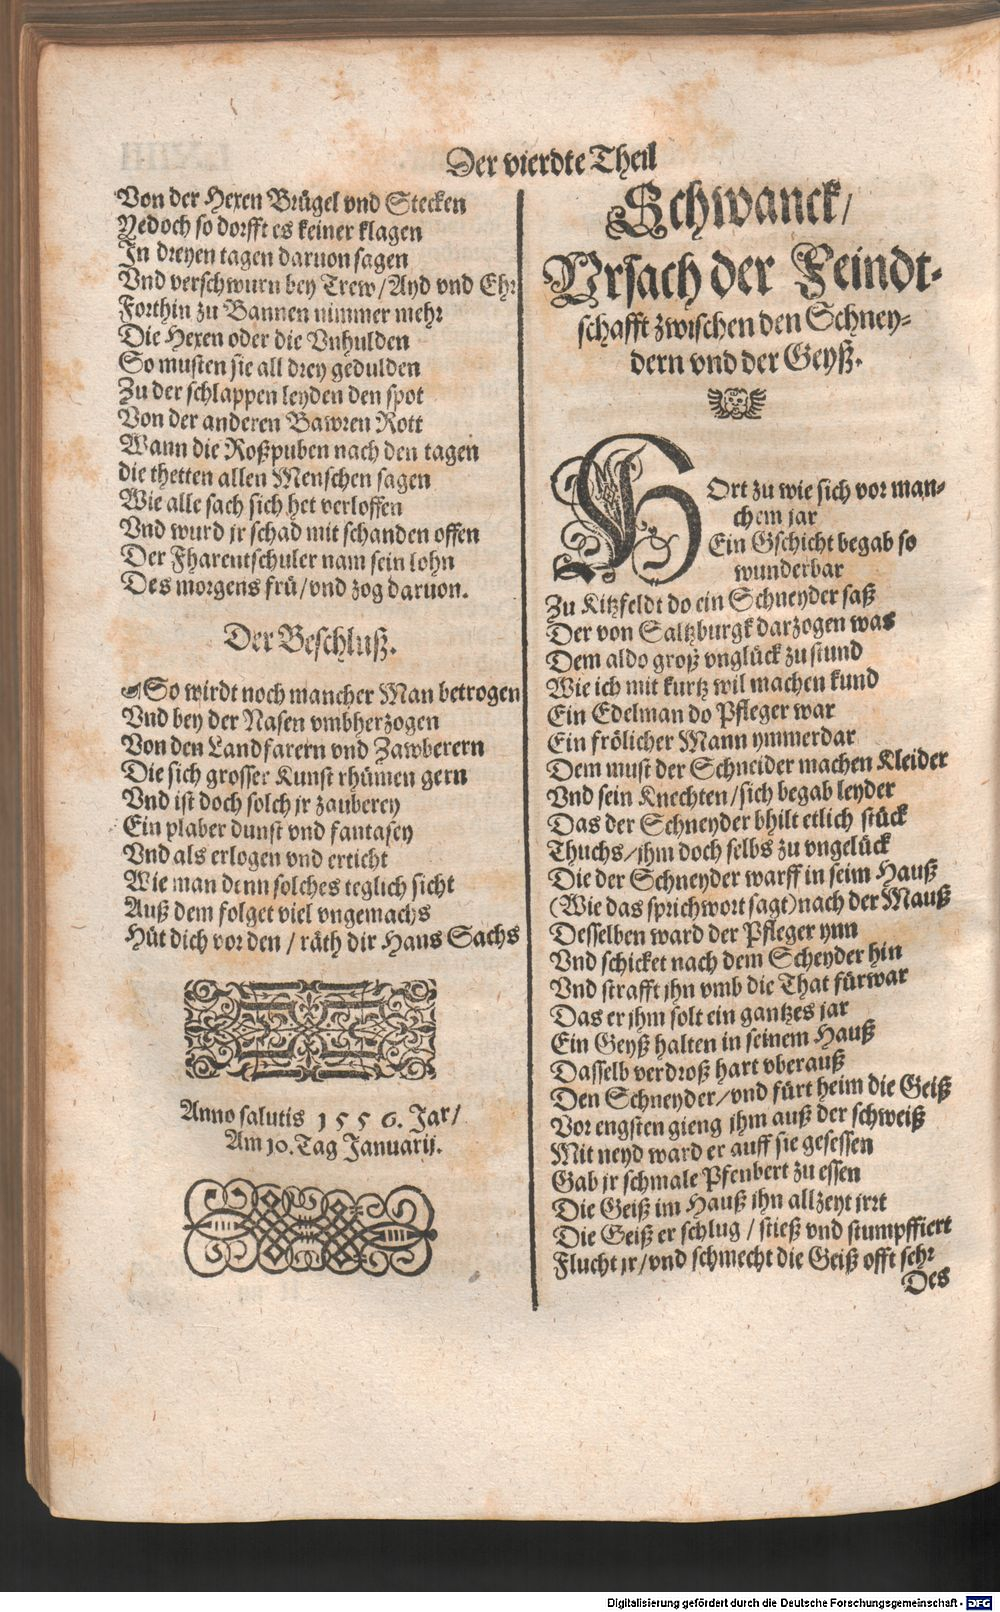 Der vierdte Theil
Von der Hexen Brügel vnd Stecken
Yedoch so dorfft es keiner klagen
In dreyen tagen daruon sagen
Vnd verschwurn bey Trew/Ayd vnd Ehr
Forthin zu Bannen nimmer mehr
Die Hexen oder die Vnhulden
So musten sie all drey gedulden
Zu der schlappen leyden den spot
Von der anderen Bawren Rott
Wann die Roßpuben nach den tagen
die thetten allen Menschen sagen
Wie alle sach sich het verloffen
Vnd wurd jr schad mit schanden offen
Der Fharentschuler nam sein lohn
Des morgens frü/vnd zog daruon.
Der Beschluß.
So wirdt noch mancher Man betrogen
Vnd bey der Nasen vmbherzogen
Von den Landfarern vnd Zawberern
Die sich grosser Kunst rhümen gern
Vnd ist doch solch jr zauberey
Ein plaber dunst vnd fantasey
Vnd als erlogen vnd erticht
Wie man denn solches teglich sicht
Auß dem folget viel vngemachs
Hüt dich vor den / räth dir Hans Sachs
Anno salutis 1556. Jar/
Am 10. Tag Januarij.
Schwanck/
Vrsach der Feindt-
schafft zwischen den Schney-
dern vnd der Geyß.
HOrt zu wie sich vor man-
chem jar
Ein Gschicht begab so
wunderbar
Zu Kitzfeldt do ein Schneyder saß
Der von Saltzburgk darzogen was
Dem aldo groß vnglück zu stund
Wie ich mit kurtz wil machen kund
Ein Edelman do Pfleger war
Ein frölicher Mann ymmerdar
Dem must der Schneider machen Kleider
Vnd sein Knechten/sich begab leyder
Das der Schneyder bhilt etlich stück
Thuchs/jhm doch selbs zu vngelück
Die der Schneyder warff in seim Hauß
(Wie das sprichwort sagt)nach der Mauß
Desselben ward der Pfleger ynn
Vnd schicket nach dem Scheyder hin
Vnd strafft jhn vmb die That fürwar
Das er jhm solt ein gantzes jar
Ein Geyß halten in seinem Hauß
Dasselb verdroß hart vberauß
Den Schneyder/vnd fürt heim die Geiß
Vor engsten gieng jhm auß der schweiß
Mit neyd ward er auff sie gesessen
Gab jr schmale Pfenbert zu essen
Die Geiß im Hauß jhn allzeyt jrrt
Die Geiß er schlug / stieß vnd stumpffiert
Flucht jr/vnd schmecht die Geiß offt sehr
Des
Digitalisierung gefördert durch die Deutsche Forschungsgemeinschaft - DFG